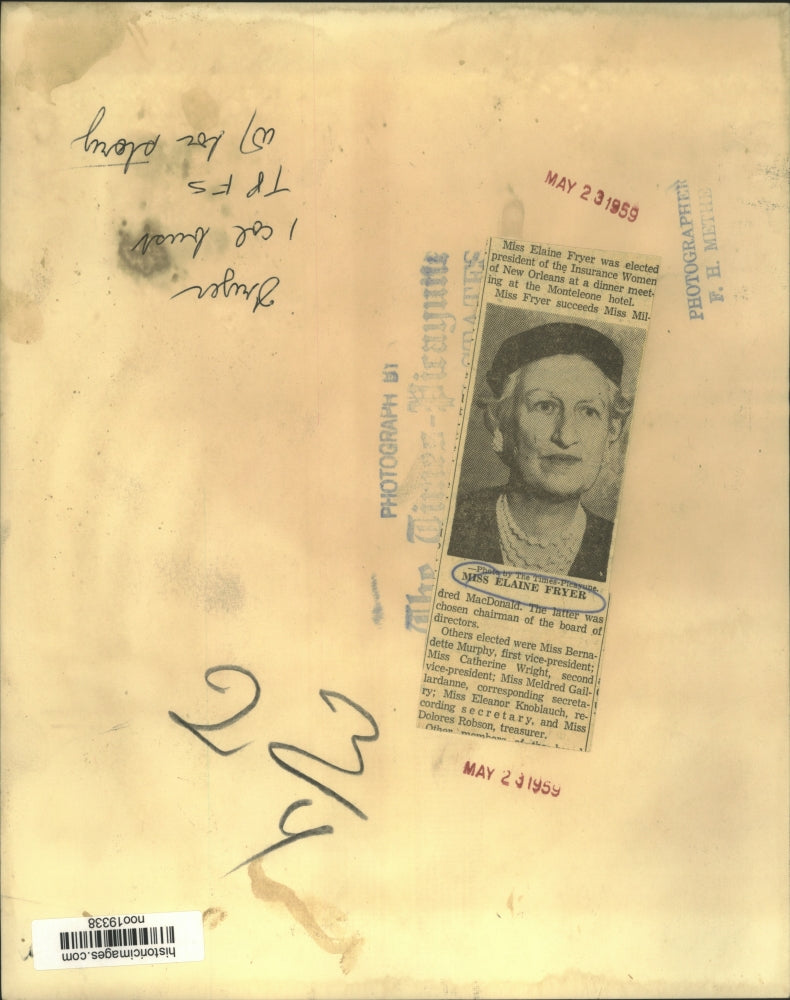 Fryer
1 col bust
TP FS
w/ for story
MAY 23 1959
PHOTOGRAPHER
F. H. METHE
PHOTOGRAPH BY
The Times-Picayune
STATES
Miss Elaine Fryer was elected
president of the Insurance Women
of New Orleans at a dinner meet-
ing at the Monteleone hotel.
Miss Fryer succeeds Miss Mil-
—Photo by The Times-Picayune.
MISS ELAINE FRYER
dred MacDonald. The latter was
chosen chairman of the board of
directors.
Others elected were Miss Berna-
dette Murphy, first vice-president;
Miss Catherine Wright, second
vice-president; Miss Meldred Gail-
lardanne, corresponding secreta-
ry; Miss Eleanor Knoblauch, re-
cording secretary, and Miss
Dolores Robson, treasurer.
Other members of the
MAY 23 1959
historicimages.com
noo19338